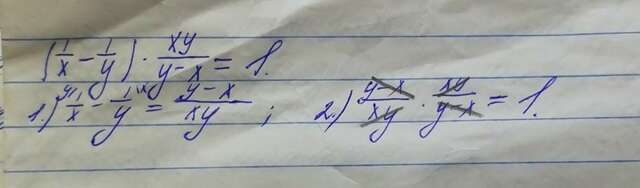 (1/x - 1/y) · xy/(y-x) = 1.
1.) 1/x^(y\ - 1/y^(x\ = (y-x)/xy ; 2.) (y-x)/xy · xy/(y-x) = 1.